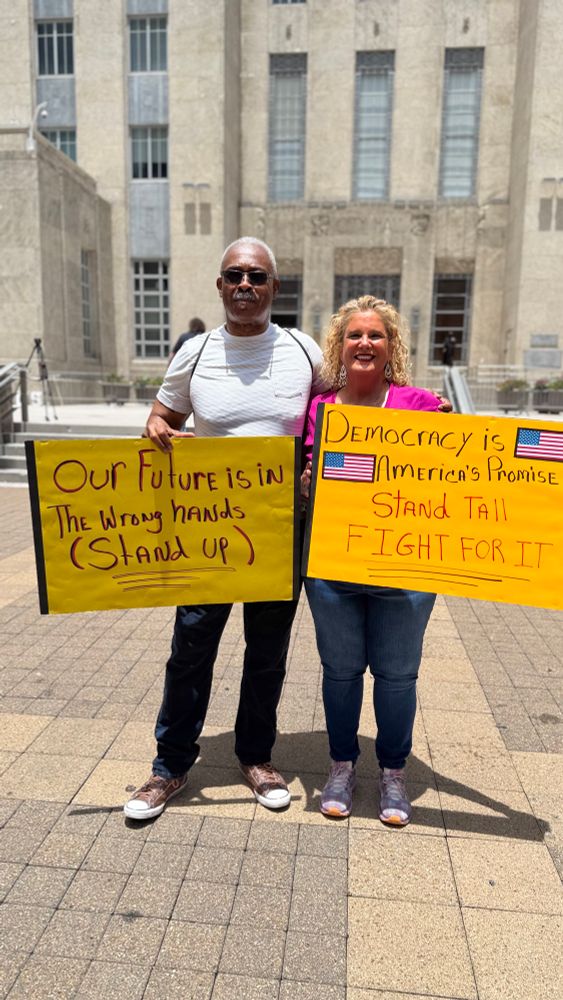 Our Future is in
The Wrong hands
(Stand up)
Democracy is
America's Promise
Stand Tall
FIGHT FOR IT